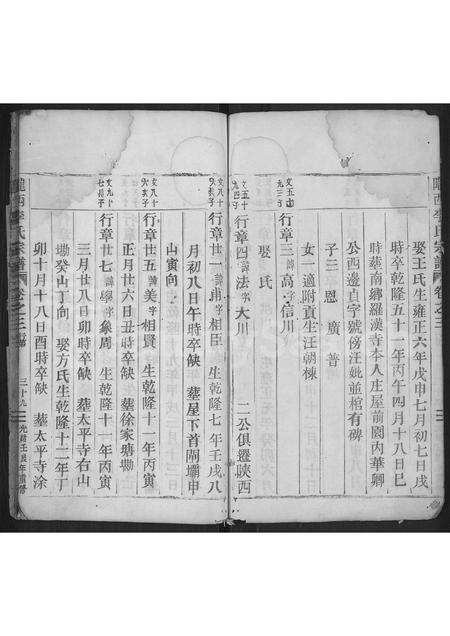 隴西李氏宗譜 卷之三
娶王氏生雍正六年戊申七月初七日戌
時卒乾隆五十一年丙午四月十八日巳
時墓南鄉羅漢寺本人庄屋前園內華卿
公西邊自字號傍汪姒並棺有碑
子三 恩 廣 普
女一適附貢生汪朝棟
行章三諱高字信川
娶 氏
文五十
九四子
行章四諱法字大川 二公俱遷陝西
行章廿一諱甫字相臣 生乾隆七年壬戌八
月初八日午時卒缺 墓屋下首關壩申
山寅向
文八十
行章廿五諱美字相賢 生乾隆十一年丙寅
正月廿六日丑時卒缺 墓徐家塘坳
文九十
行章廿七諱學字象周 生乾隆十一年丙寅
三月廿八日卯時卒缺 墓太平寺右山
坳癸山丁向 娶方氏生乾隆十二年丁
卯十月十八日酉時卒缺 墓太平寺涂
隴西李氏宗譜 卷之三 三十九 光緒壬辰年重修